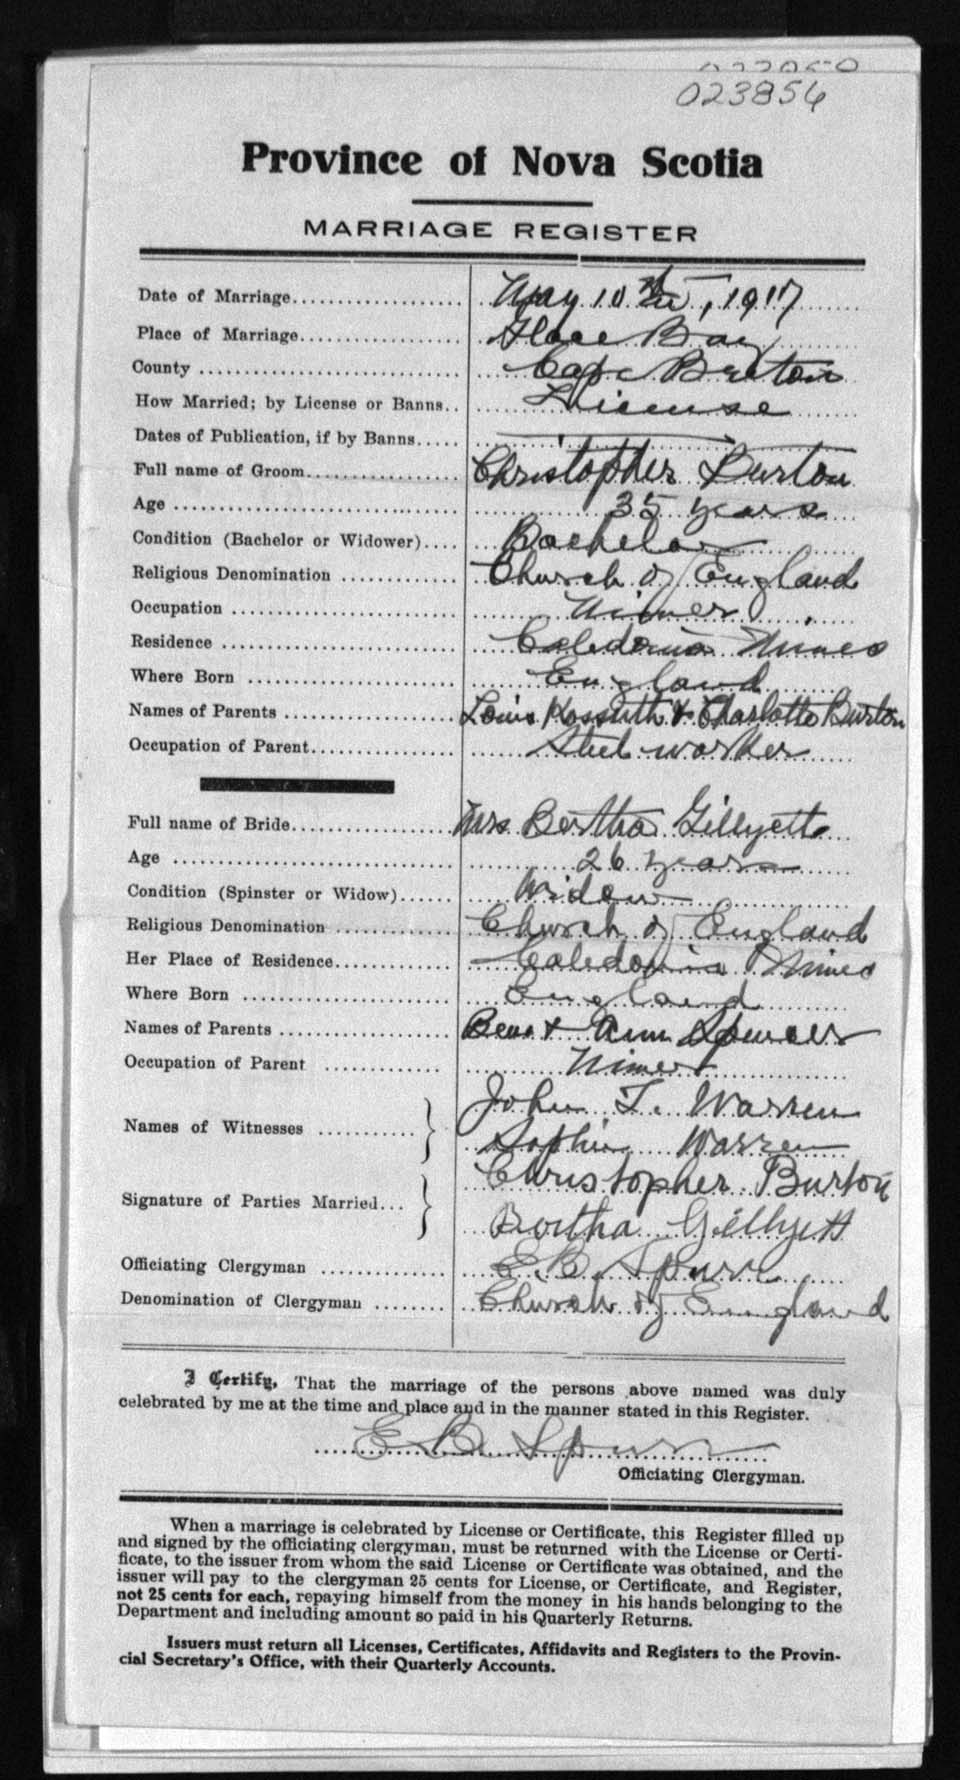 023856
Province of Nova Scotia
MARRIAGE REGISTER
Date of Marriage.................... May 10th, 1917
Place of Marriage................... Glace Bay
County ............................. Cape Breton
How Married; by License or Banns.. License
Dates of Publication, if by Banns.....
Full name of Groom.................. Christopher Burton
Age ................................ 35 years
Condition (Bachelor or Widower).... Bachelor
Religious Denomination ............ Church of England
Occupation ......................... Miner
Residence .......................... Caledonia Mines
Where Born ......................... England
Names of Parents ................... Louis Kossuth & Charlotte Burton
Occupation of Parent................ Steel worker
Full name of Bride.................. Mrs Bertha Gillyett
Age ................................ 26 years
Condition (Spinster or Widow)...... Widow
Religious Denomination ............ Church of England
Her Place of Residence............. Caledonia Mines
Where Born ......................... England
Names of Parents ................... Benj & Ann Spencer
Occupation of Parent .............. Miner
Names of Witnesses ........... John T. Warren
Sophie Warren
Signature of Parties Married... Christopher Burton
Bertha Gillyett
Officiating Clergyman .............. E. B. Spurr
Denomination of Clergyman ........ Church of England
I Certify, That the marriage of the persons above named was duly
celebrated by me at the time and place and in the manner stated in this Register.
E B Spurr
Officiating Clergyman.
When a marriage is celebrated by License or Certificate, this Register filled up
and signed by the officiating clergyman, must be returned with the License or Certi-
ficate, to the issuer from whom the said License or Certificate was obtained, and the
issuer will pay to the clergyman 25 cents for License, or Certificate, and Register,
not 25 cents for each, repaying himself from the money in his hands belonging to the
Department and including amount so paid in his Quarterly Returns.
Issuers must return all Licenses, Certificates, Affidavits and Registers to the Provin-
cial Secretary's Office, with their Quarterly Accounts.